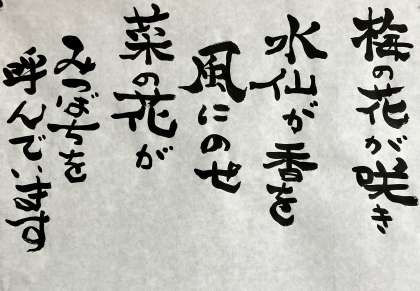 梅の花が咲き
水仙が香を
風にのせ
菜の花が
みつばちを
呼んでいます